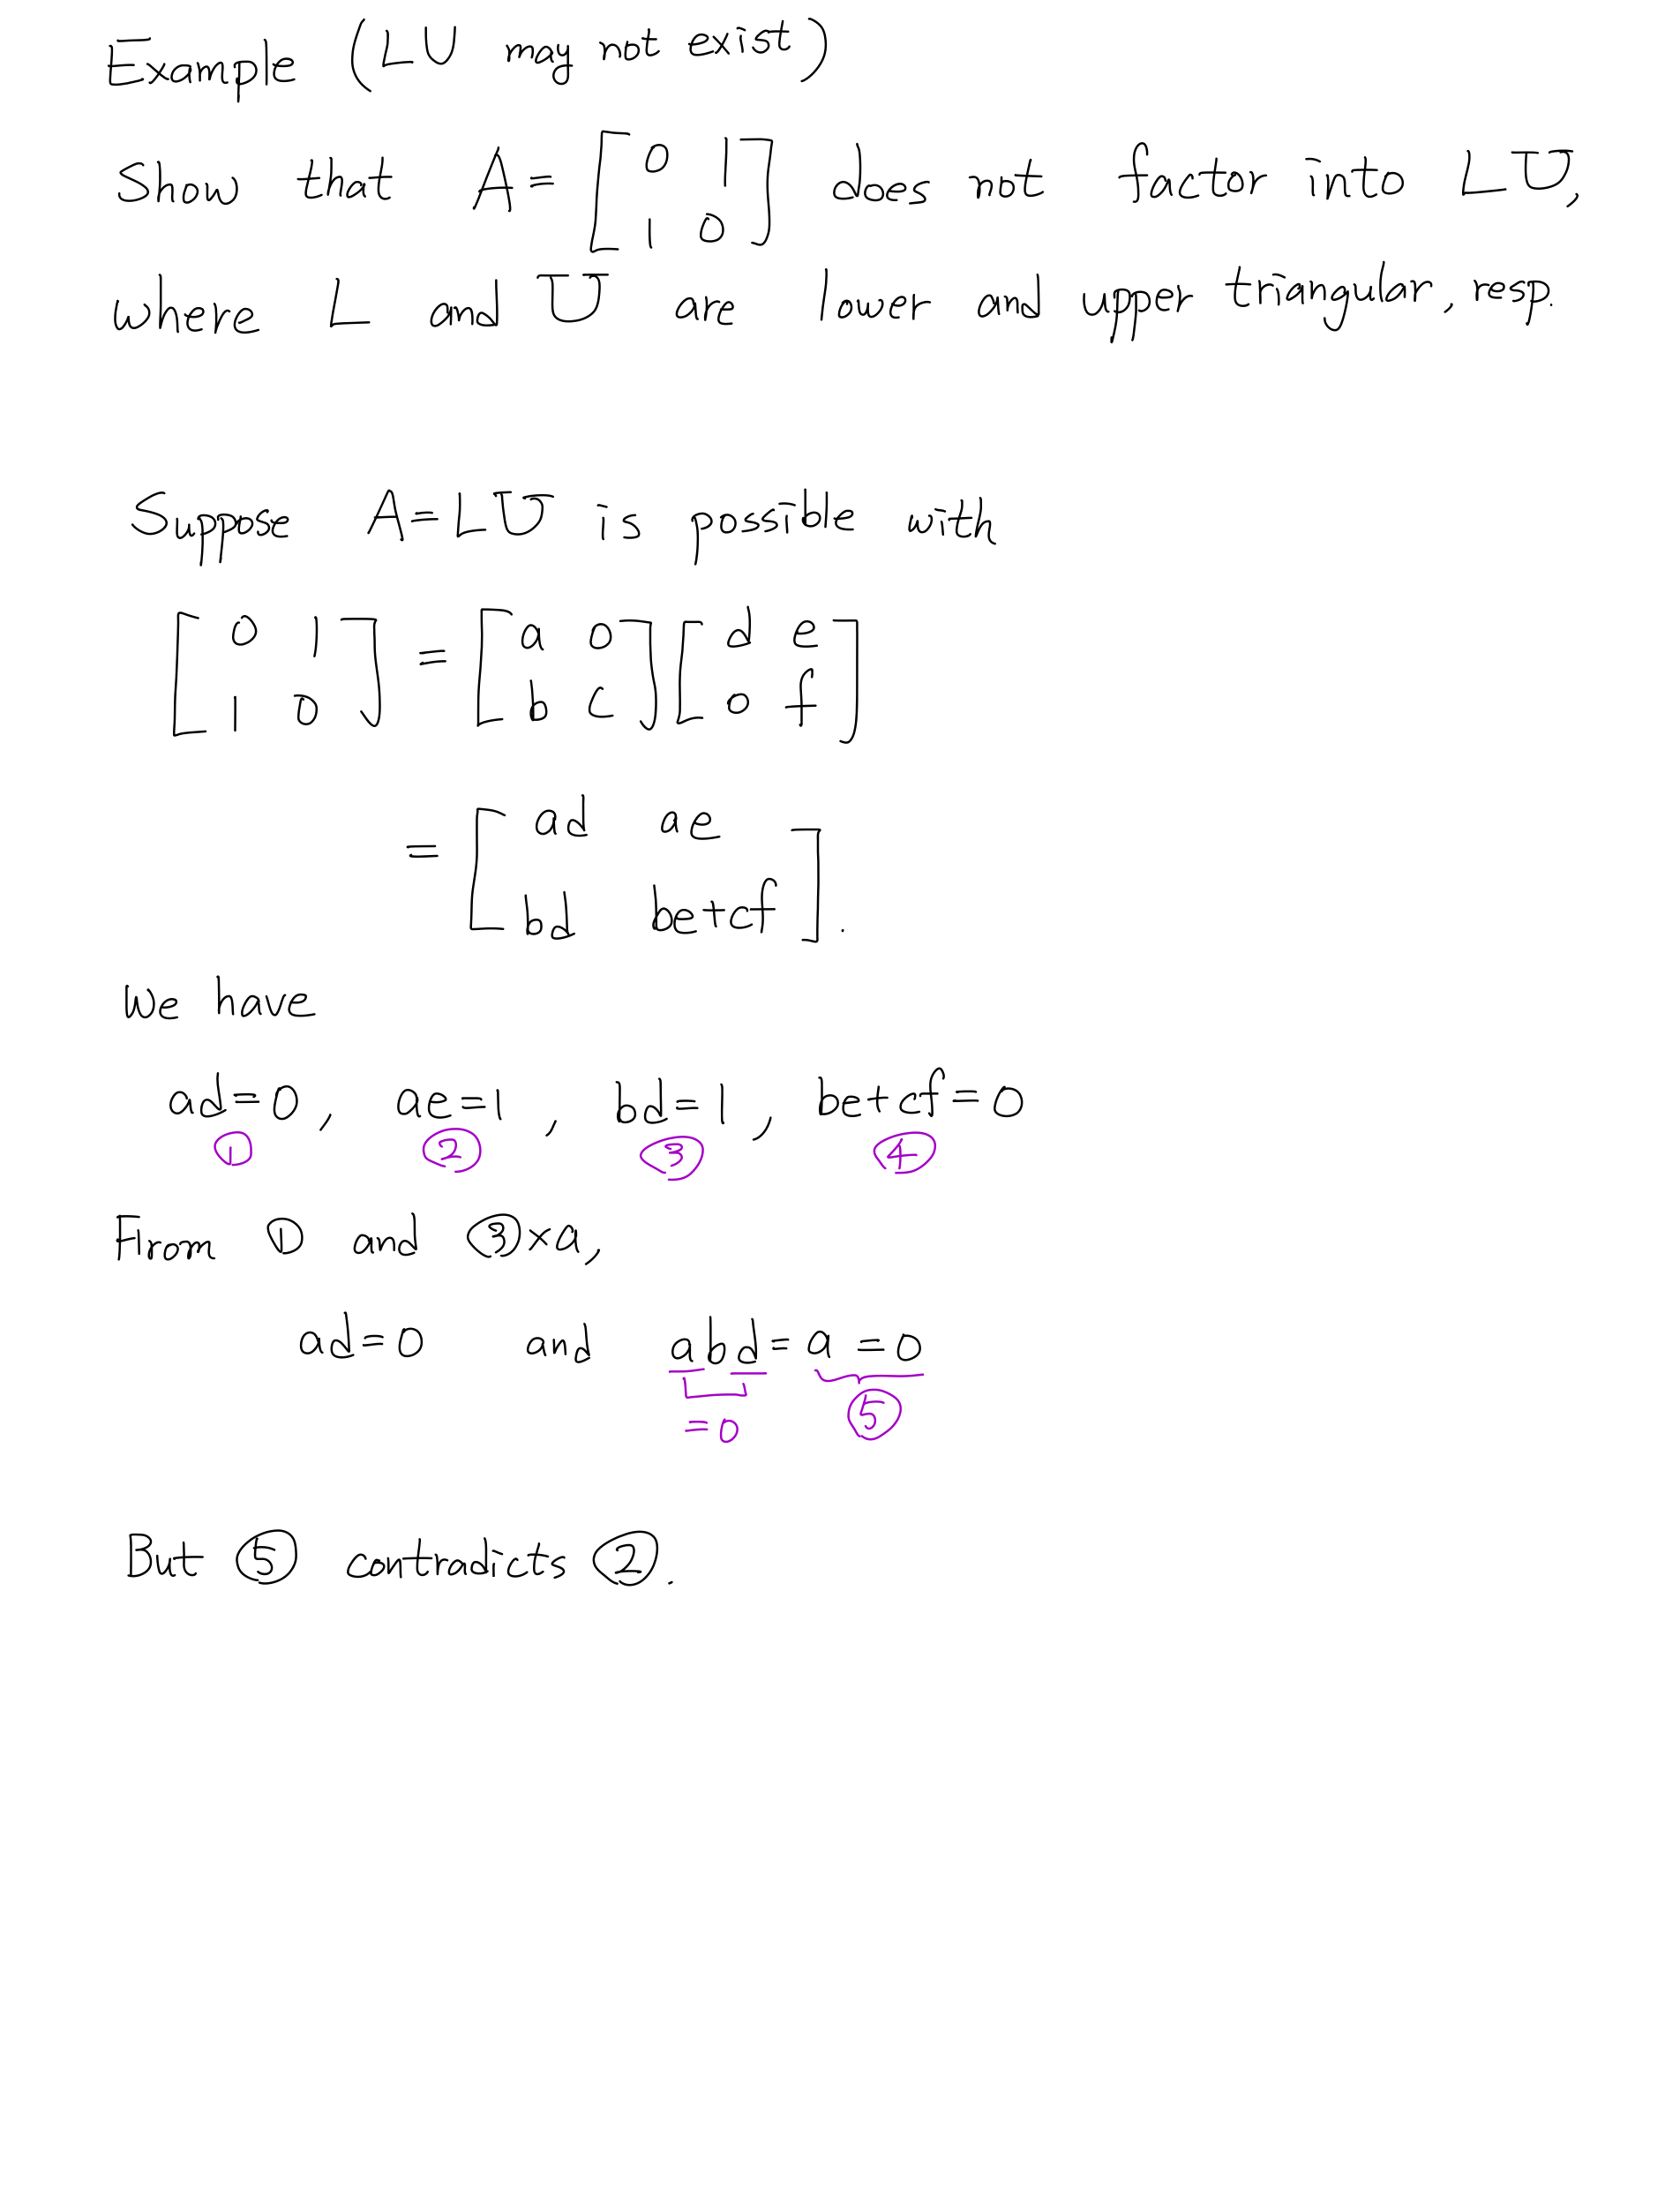 Example (LU may not exist)
Show that A = [ 0 1 ; 1 0 ] does not factor into LU,
where L and U are lower and upper triangular, resp.
Suppose A=LU is possible with
[ 0 1 ; 1 0 ] = [ a 0 ; b c ] [ d e ; 0 f ]
= [ ad ae ; bd be+cf ].
We have
ad=0, ae=1, bd=1, be+cf=0
① ② ③ ④
From ① and ③×a,
ad=0 and abd=a=0
=0 ⑤
But ⑤ contradicts ②.